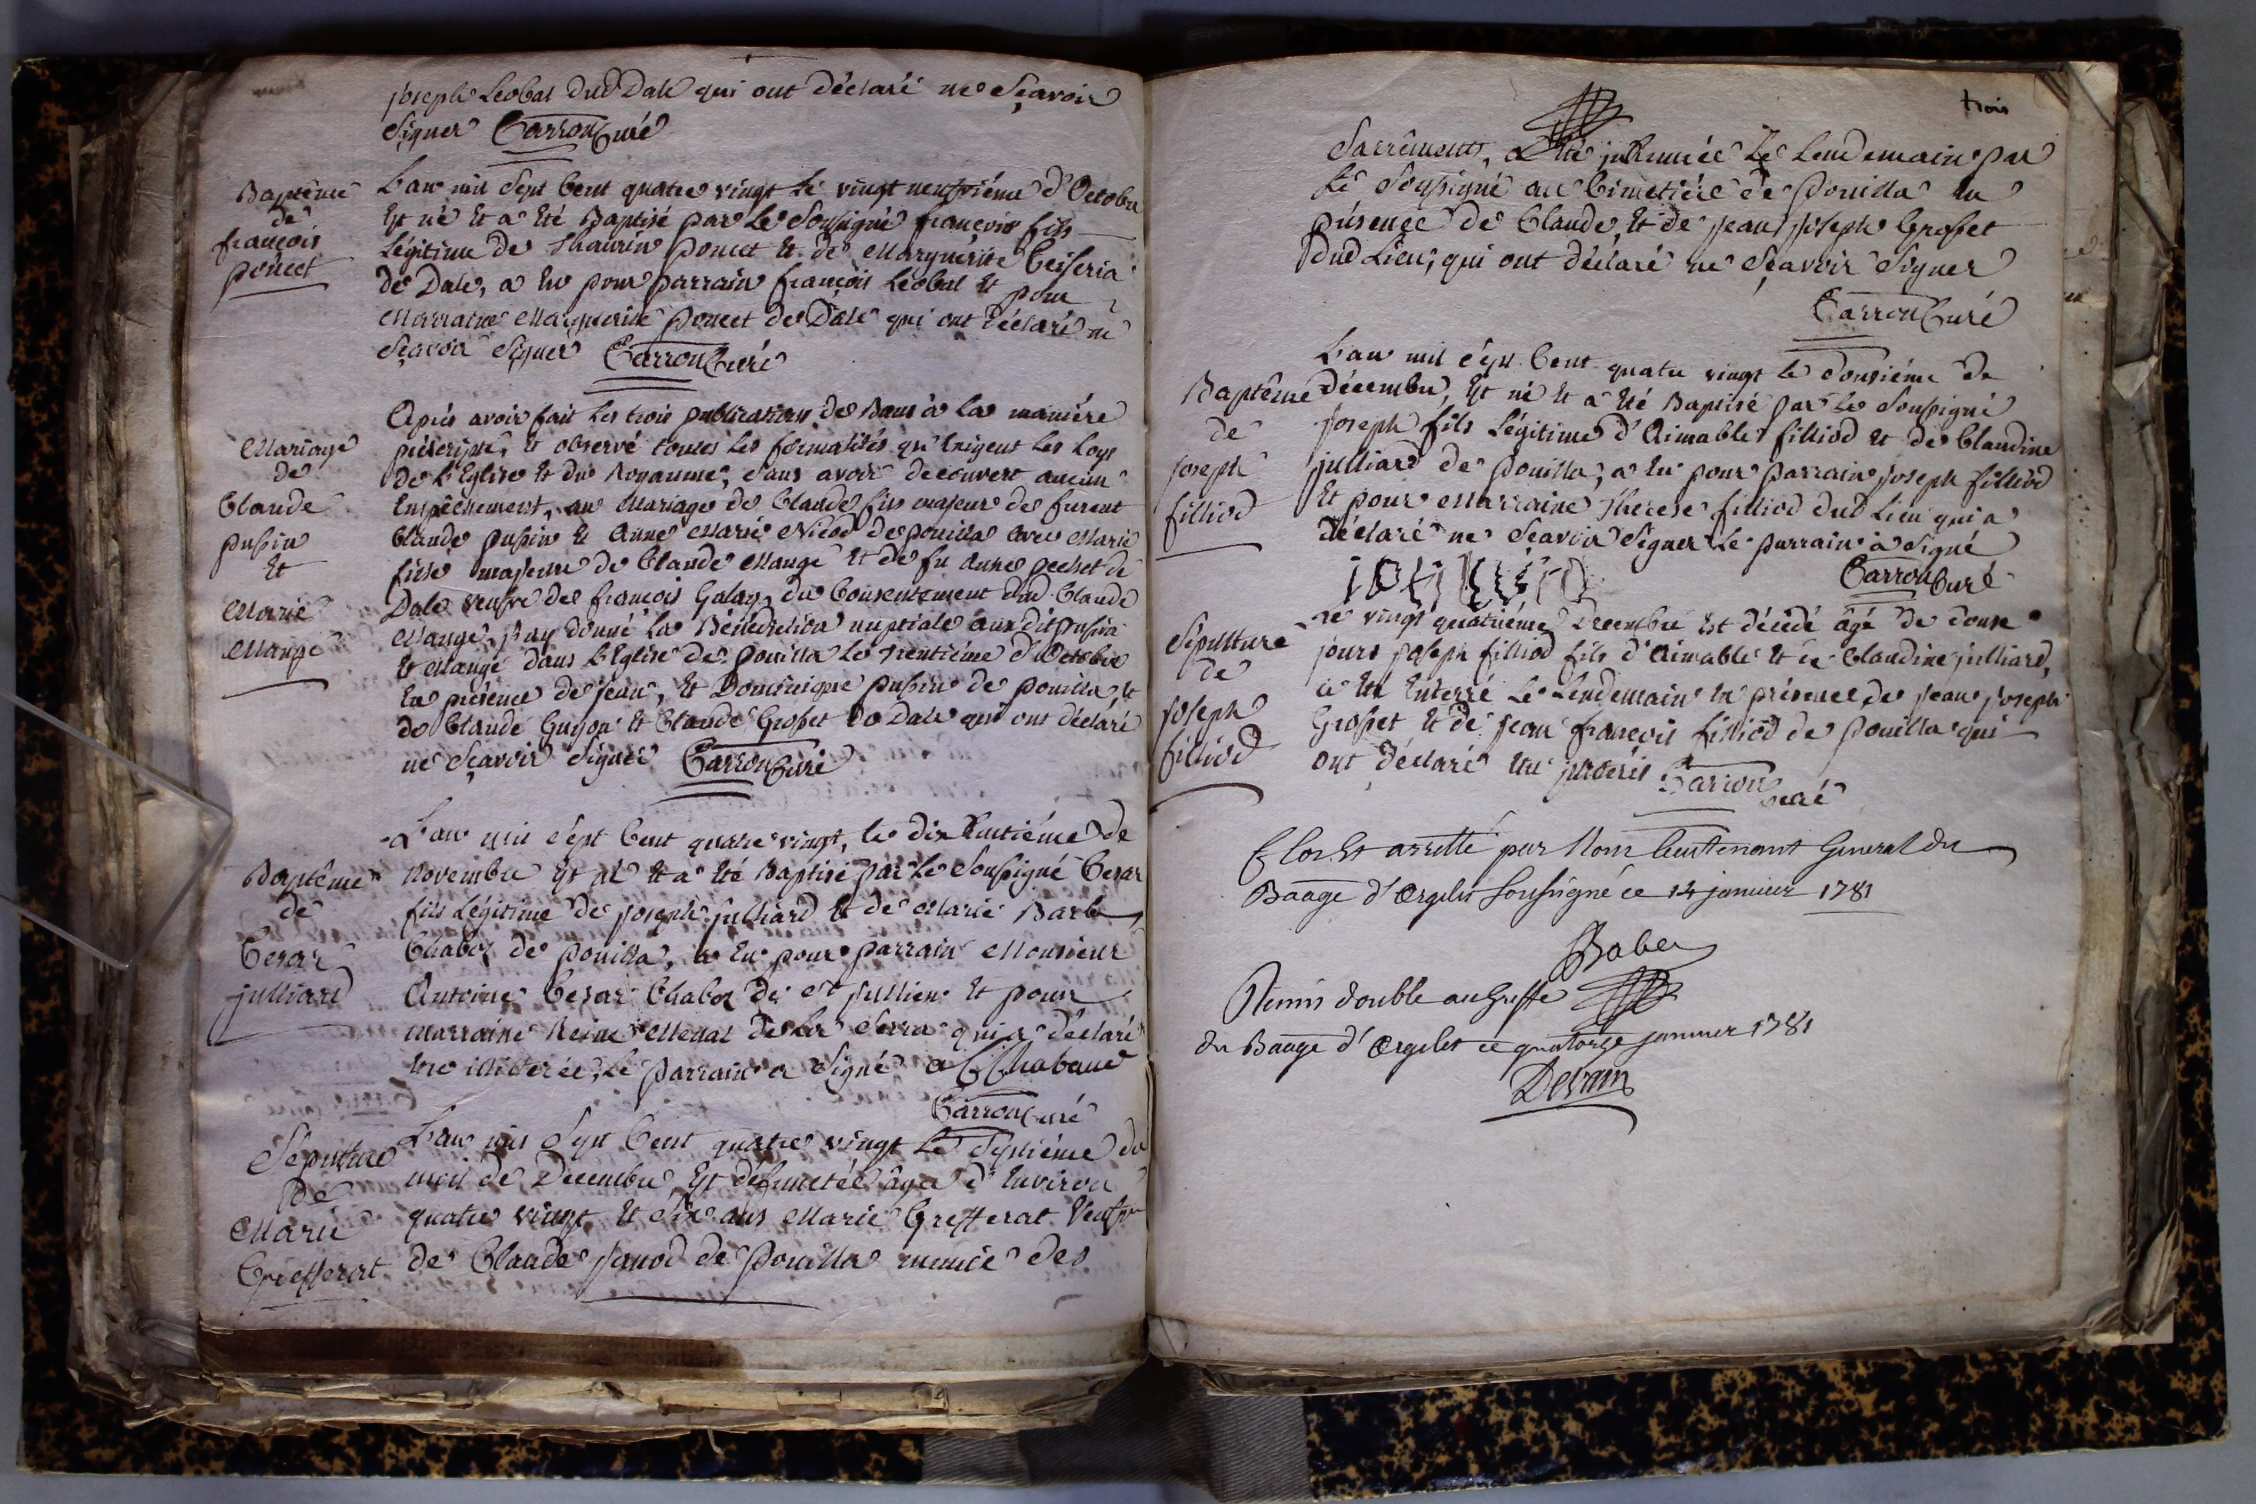 joseph Léobal dud Dale qui ont déclaré ne Sçavoir
Signer Carron Curé
Baptême
de
françois
poncet
L'an mil Sept Cent quatre vingt le vingt neufvième d'Octobre
Est né Et a Eté Baptisé par le Soussigné françois fils
Légitime de Thaurin poncet Et de Marguerite
de Dale, a Eu pour parrain françois Léobal Et pour
Marraine Marguerite poncet de Dale qui ont déclaré ne
Sçavoir Signer Carron Curé
Mariage
de
Claude
pussin
Et
Marie
Mange
Après avoir fait Les trois publications de Bans à La manière
préscripte, Et observé toutes Les formalités qu'Exigent Les Loys
de L'Eglise Et du Royaume, sans avoir découvert aucun
Empêchement, au Mariage de Claude fils majeur de furent
Claude pussin Et Anne Marie Nicod de pouilla avec Marie
fille majeure de Claude Mange Et de fu Anne pechet de
Dale veufve de françois Galay, du Consentement dud Claude
Mange, j'ay donné La Bénédiction nuptiale aux dit pussin
Et Mange dans L'Eglise de pouilla Le trentième d'Octobre
En présence de jean, Et Dominique pussin de pouilla, Et
de Claude Guyon Et Claude Grosset de Dale qui ont déclaré
ne Sçavoir Signer Carron Curé
Baptême
de
Cesar
julliard
L'an mil sept Cent quatre vingt, le dix huitième de
Novembre Est né Et a Eté Baptisé par Le Soussigné Cesar
fils Légitime de joseph julliard Et de Marie Barbe
Chaboz de pouilla, a Eu pour parrain Monsieur
Antoine Cesar Chaboz de St jullien Et pour
marraine Reine Menal de La Serra qui a déclaré
Etre illitérée, Le parrain a Signé
Carron Curé
Sépulture
de
Marie
Grefferat
L'an mil Sept Cent quatre vingt Le Septième du
mois de Decembre, Est défunctée âgée d'Environ
quatre vingt Et Six ans Marie Grefferat Veufve
de Claude janod de pouilla munie des
trois
Sacréments, a Eté inhumée Le Lendemain par
Le Soussigné au Cimetière de pouilla En
présence de Claude, Et de jean joseph Grosset
dud Lieu, qui ont déclaré ne Sçavoir Signer
Carron Curé
Baptême
de
joseph
filliod
L'an mil sept Cent quatre vingt le douzième de
décembre, Est né Et a Eté Baptisé par Le Soussigné
joseph fils Légitime d'Aimable filliod Et de Claudine
julliard de pouilla, a Eu pour parrain joseph filliod
Et pour Marraine Therese filliod dud Lieu qui a
déclaré ne Sçavoir Signer Le parrain a Signé
Carron Curé
Sépulture
de
joseph
filliod
Le vingt quatrième Decembre Est décédé âgé de douze
jours joseph filliod fils d'Aimable Et de Claudine julliard,
a Eté Enterré Le Lendemain En présence de jean joseph
Grosset Et de jean françois filliod de pouilla qui
ont déclaré Etre illiterés Carron
Curé
Clos Et arretté par Nous lieutenant General du
Baage d'Orgelet Soussigné ce 14 janvier 1781
Babey
Remis double au Greffe
du Baage d'Orgelet ce quatorze janvier 1781